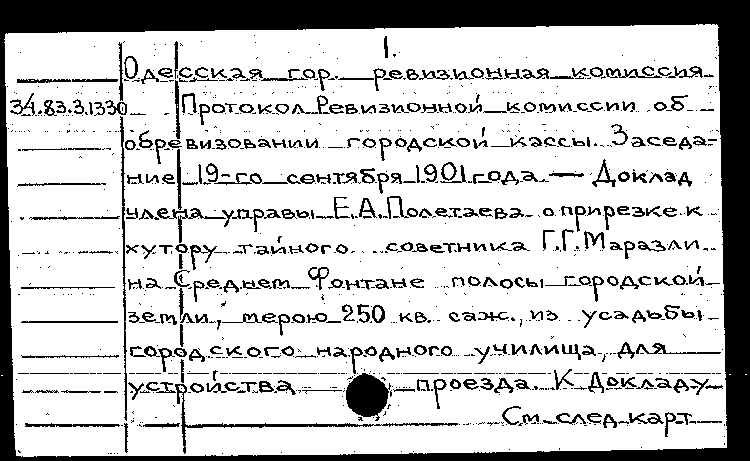 1.
Одесская гор. ревизионная комиссия
34.83.3.1330 Протокол Ревизионной комиссии об
обревизовании городской кассы. Заседа=
ние 19-го сентября 1901 года. — Доклад
члена управы Е.А.Полетаева о прирезке к
хутору тайного советника Г.Г.Маразли
на Среднем Фонтане полосы городской
земли, мерою 250 кв. саж., из усадьбы
городского народного училища, для
устройства проезда. К докладу
См. след. карт